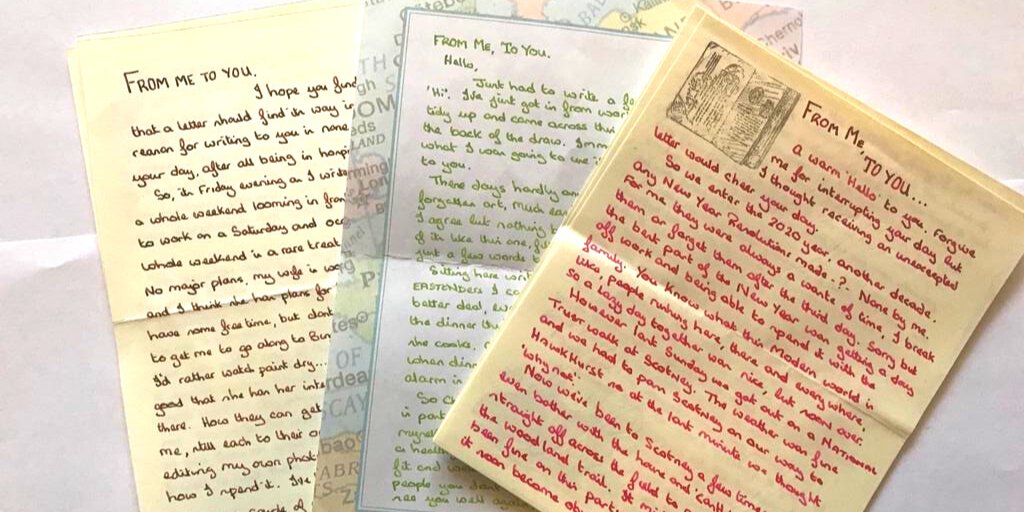 FROM ME TO YOU.
I hope you find
that a letter should find it's way in
reason for writing to you in none
your day, after all being in hospi
So, it's Friday evening as I
a whole weekend looming in fron
to work on a Saturday and
whole weekend is a rare treat
No major plans, my wife is
and I think she has plans for
have some free time, but don't
to get me to go along to Bin
I'd rather watch paint dry...
good that she has her inte
there. How they can get
me, still each to their o
editing my own phot
how I spend it. I've
couple of
FROM ME, TO YOU.
Hello,
Just had to write a
'Hi'. I've just got in from wor
tidy up and came across this
the back of the draw. I'm
what I was going to use
to you.
These days hardly an
forgotten art, much ea
I agree but nothing
of it like this one,
just a few words
Sitting here writ
EASTENDERS I
better deal,
the dinner th
she cooks,
when din
alarm in
So
is part
a heal
fit and we
people you
see you well again
FROM ME, TO YOU....
A warm 'Hello' to you. Forgive
me for interrupting your day but
I thought receiving an unexpected
letter would cheer your day.
So we enter the 2020 year, another decade.
Any New Year Revolutions made...?. None by me.
For me they were always a waste of time, I break
them or forget them after the third day. Sorry but
the best part of the New Year was getting a day
off work and being able to spend it with the
family. You know what this Modern world is
like, people rushing here, there and everywhere,
so a lazy day together was nice, but soon over.
However last Sunday we got out on a National
Trust walk at Scotney. The weather was fine
and we had to pass Scotney on our way to
Hawkhurst so at the last minute we thought
'why not'.
Now we've been to Scotney a few times
even bother with the house and castle
straight off across the field to
the wood land trail. It
been fine on this part
it soon become